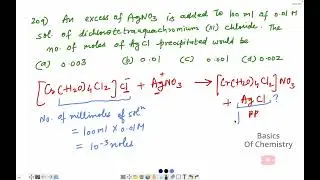 209) An excess of AgNO3 is added to 100 ml of 0.01 M
sol. of dichlorotetraaquachromium (III) chloride. The
no. of moles of AgCl precipitated would be
(a) 0.003 (b) 0.01 (c) 0.001 (d) 0.002
[Cr(H2O)4Cl2]Cl + AgNO3 → [Cr(H2O)4Cl2]NO3
+ AgCl ?
↓ PP
No. of millimoles of solⁿ
= 100 ml × 0.01 M
= 10⁻³ moles
Basics
Of Chemistry